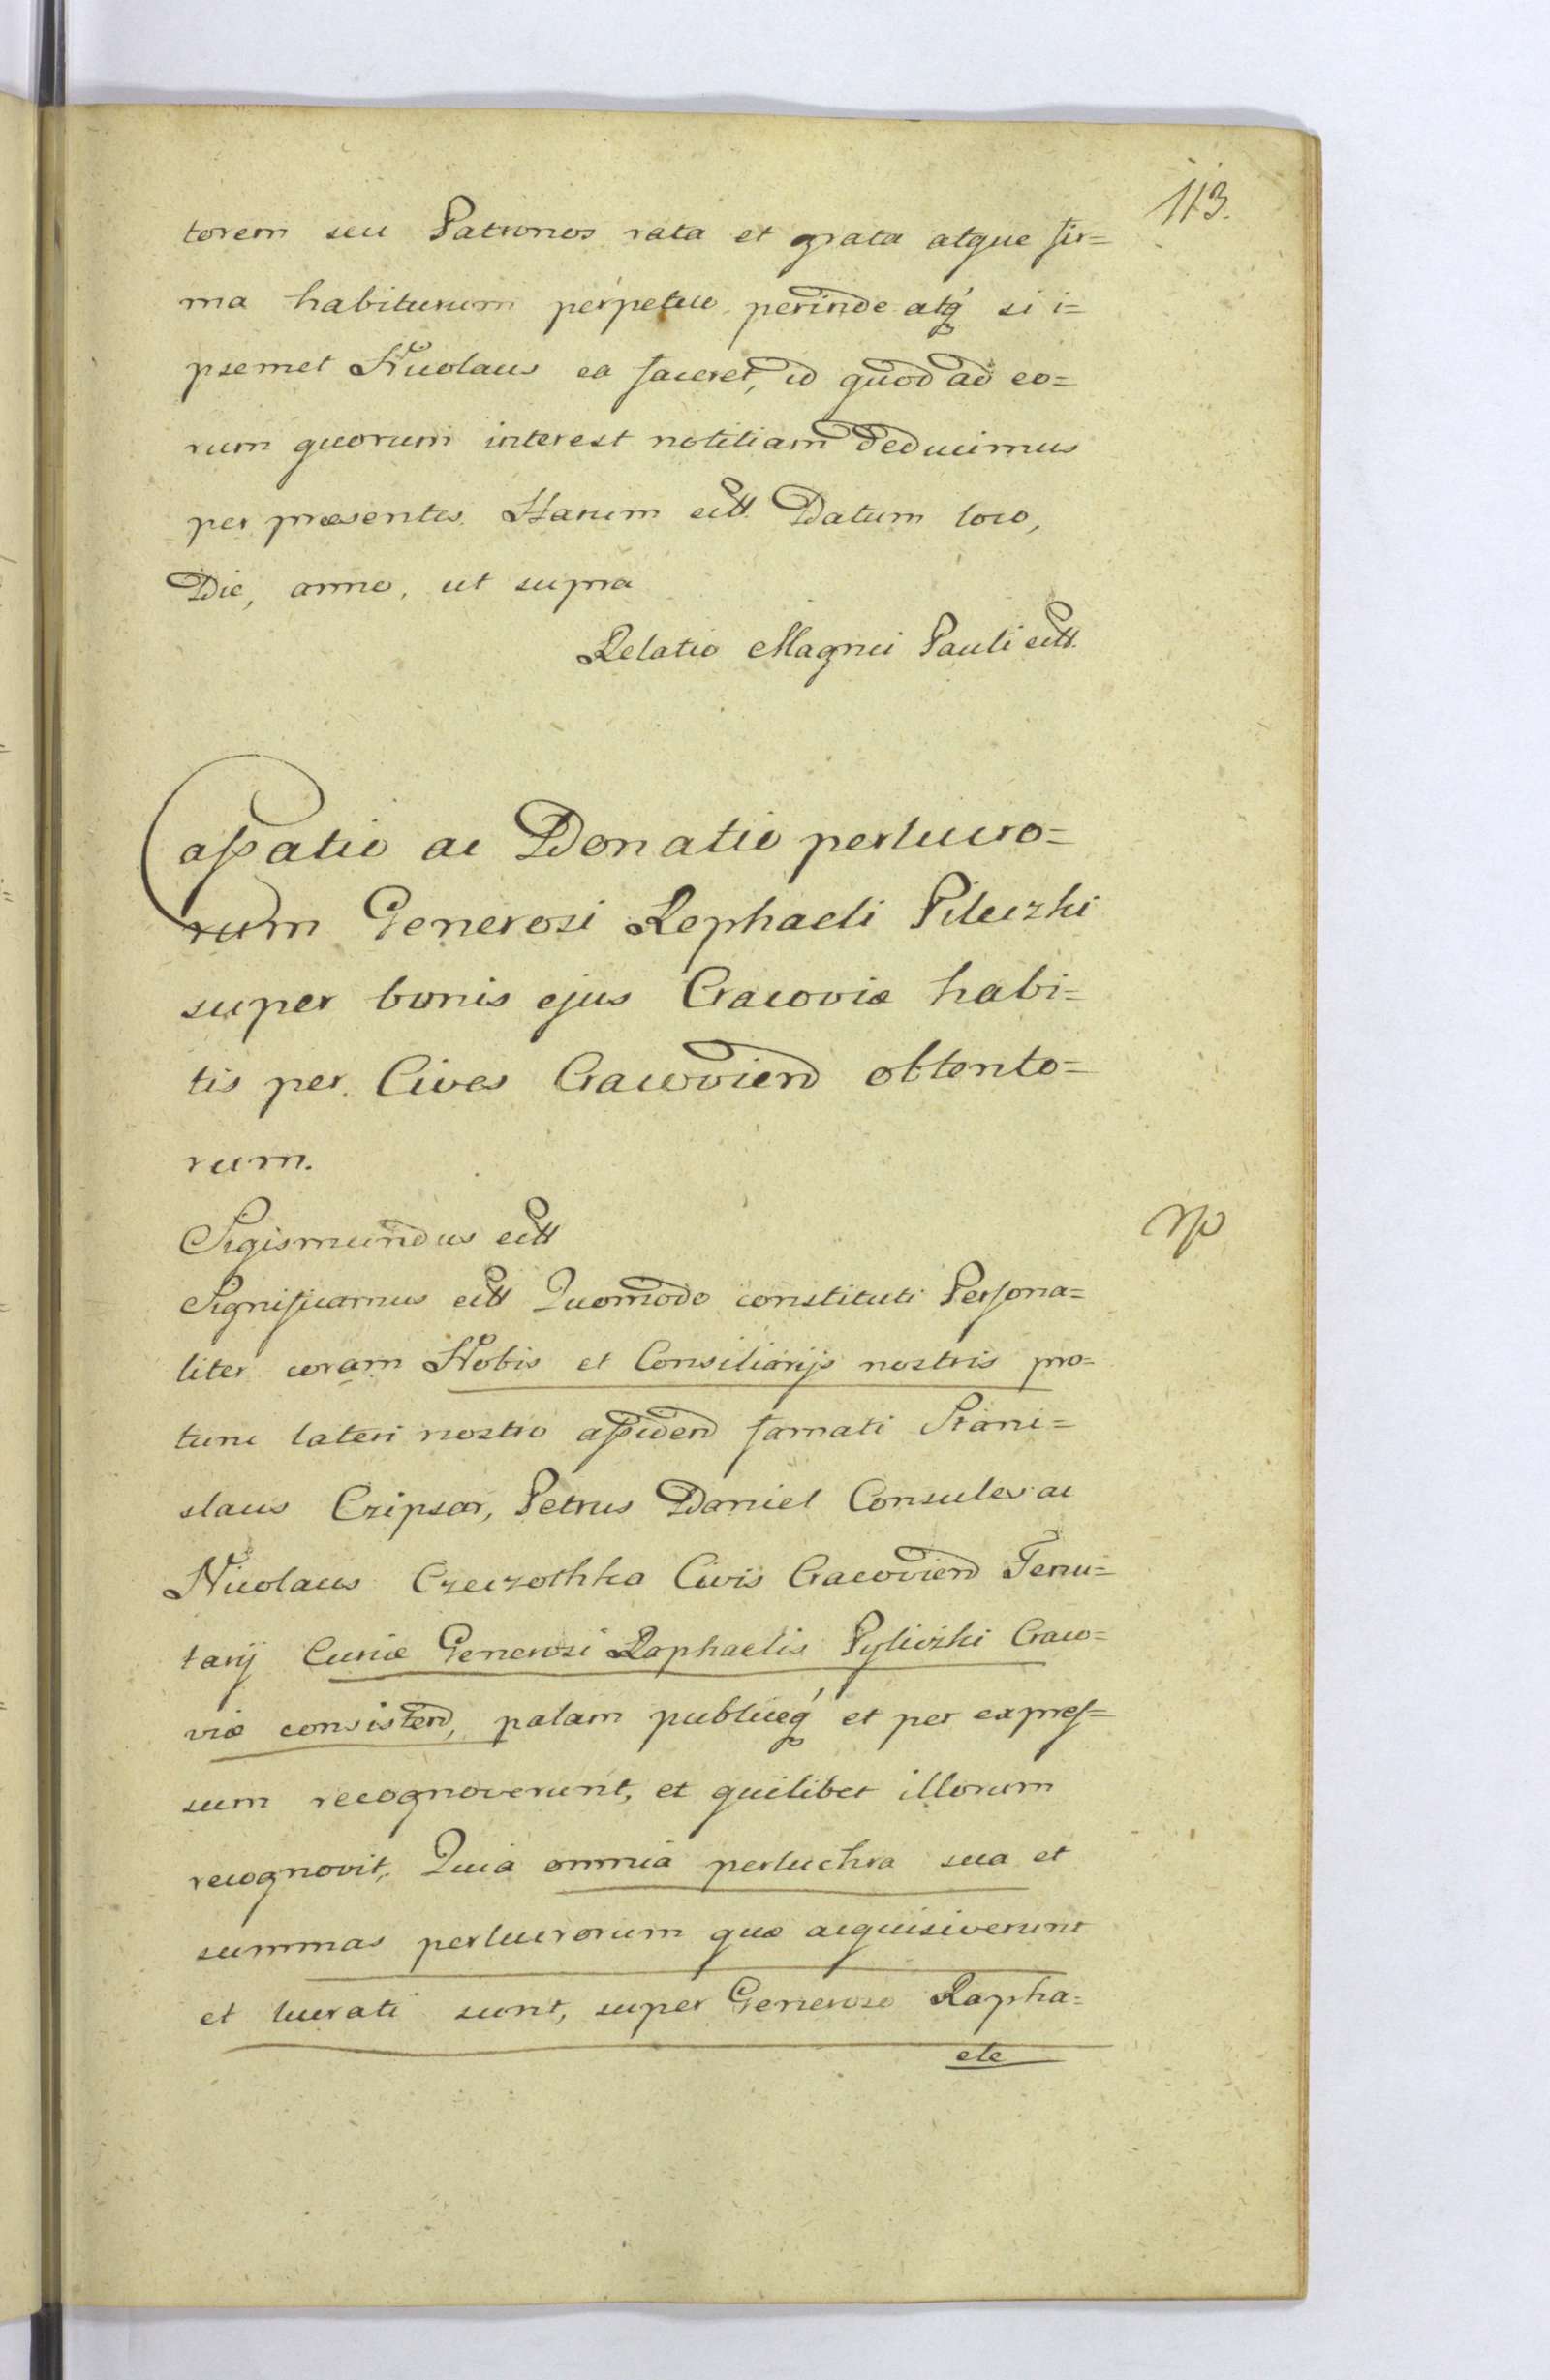 113.
torem seu Patronos rata et grata atque fir=
ma habiturum perpetuo perinde atq́ si i=
psemet Nicolaus ea faceret, id quod ad eo=
rum quorum interest notitiam deducimus
per præsentes. Harum ectt. Datum loco,
Die, anno, ut supra
Relatio Magnci Pauli ectt.
Caſsatio ac Donatio perlucro=
rum Generosi Rephaeli Pileczki
super bonis ejus Cracoviæ habi=
tis per Cives Cracovien obtento=
rum.
Sigismundus ectt
Significamus ectt Quomodo constituti Perſona=
liter coram Nobis et Consiliarijs nostris pro=
tunc lateri nostro aſsiden famati Stani=
slaus Czipsar, Petrus Daniel Consules ac
Nicolaus Czeczothka Civis Cracovien Tenu=
tarij Curiæ Generosi Raphaelis Pyliczki Craco=
viæ consisten, palam publiceq́ et per expreſ=
sum recognoverunt, et quilibet illorum
recognovit, Quia omnia perluchra sua et
summas perlucrorum quæ acquisiverunt
et lucrati sunt, super Generoso Rapha=
ele